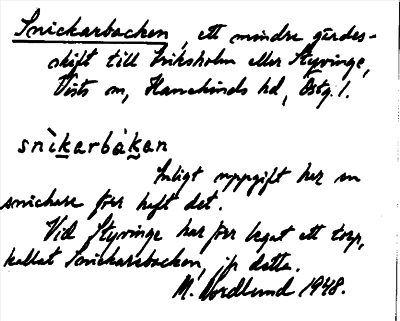 Snickarbacken, ett mindre gärdes-
skift till Eriksholm eller Styvinge,
Vists sn, Hanekinds hd, Östg. l.
snìkarbàkan
Enligt uppgift har en
snickare förr haft det.
Vid Styvinge har förr legat ett torp,
kallat Snickarebacken, jfr detta.
M. Nordlund 1948.